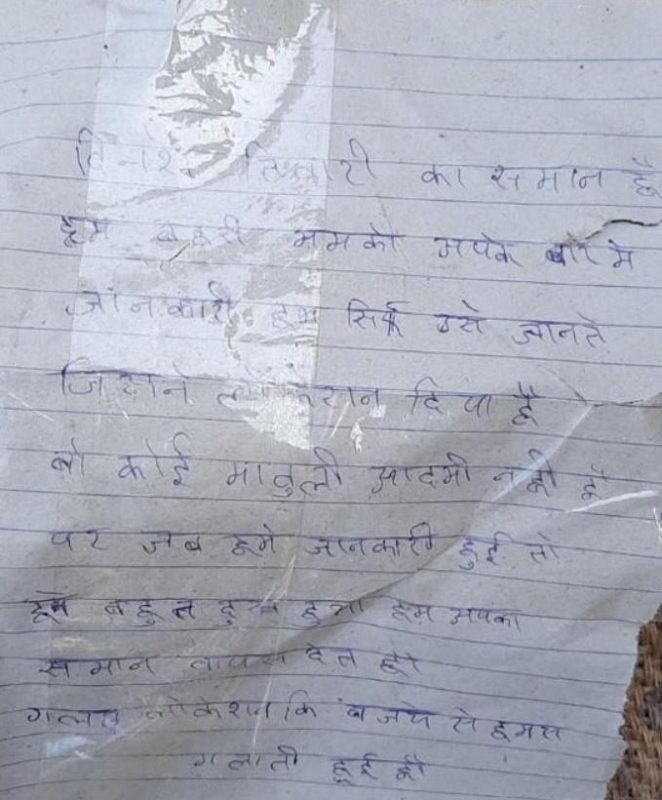 दिनेश तिवारी का समान है
हम बहरी हमको अपके बारे मे
जानकारी हम सिर्फ उसे जानते
जिसने लोकेशन दिया है
वो कोई मावुली आदमी नही है
पर जब हमे जानकारी हुई तो
हमे बहुत दुख हुआ हम अपका
समान वापस देत है
गलत लोकेशन कि वजये से हमसे
गलाती हुई है